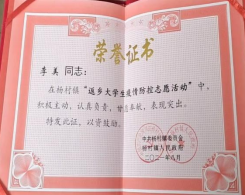 荣誉证书
李美 同志：
在杨村镇“返乡大学生疫情防控志愿活动”中，
积极主动，认真负责，甘于奉献，表现突出。
特发此证，以资鼓励。
中共杨村镇委员会
杨村镇人民政府
二〇二一年八月